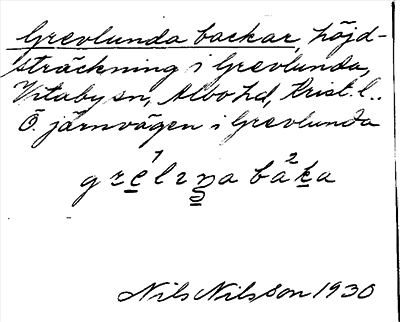 Grevlunda backar, höjd-
sträckning i Grevlunda,
Vitaby sn, Albo hd, Krist. l..
Ö. järnvägen i Grevlunda
Nils Nilsson 1930